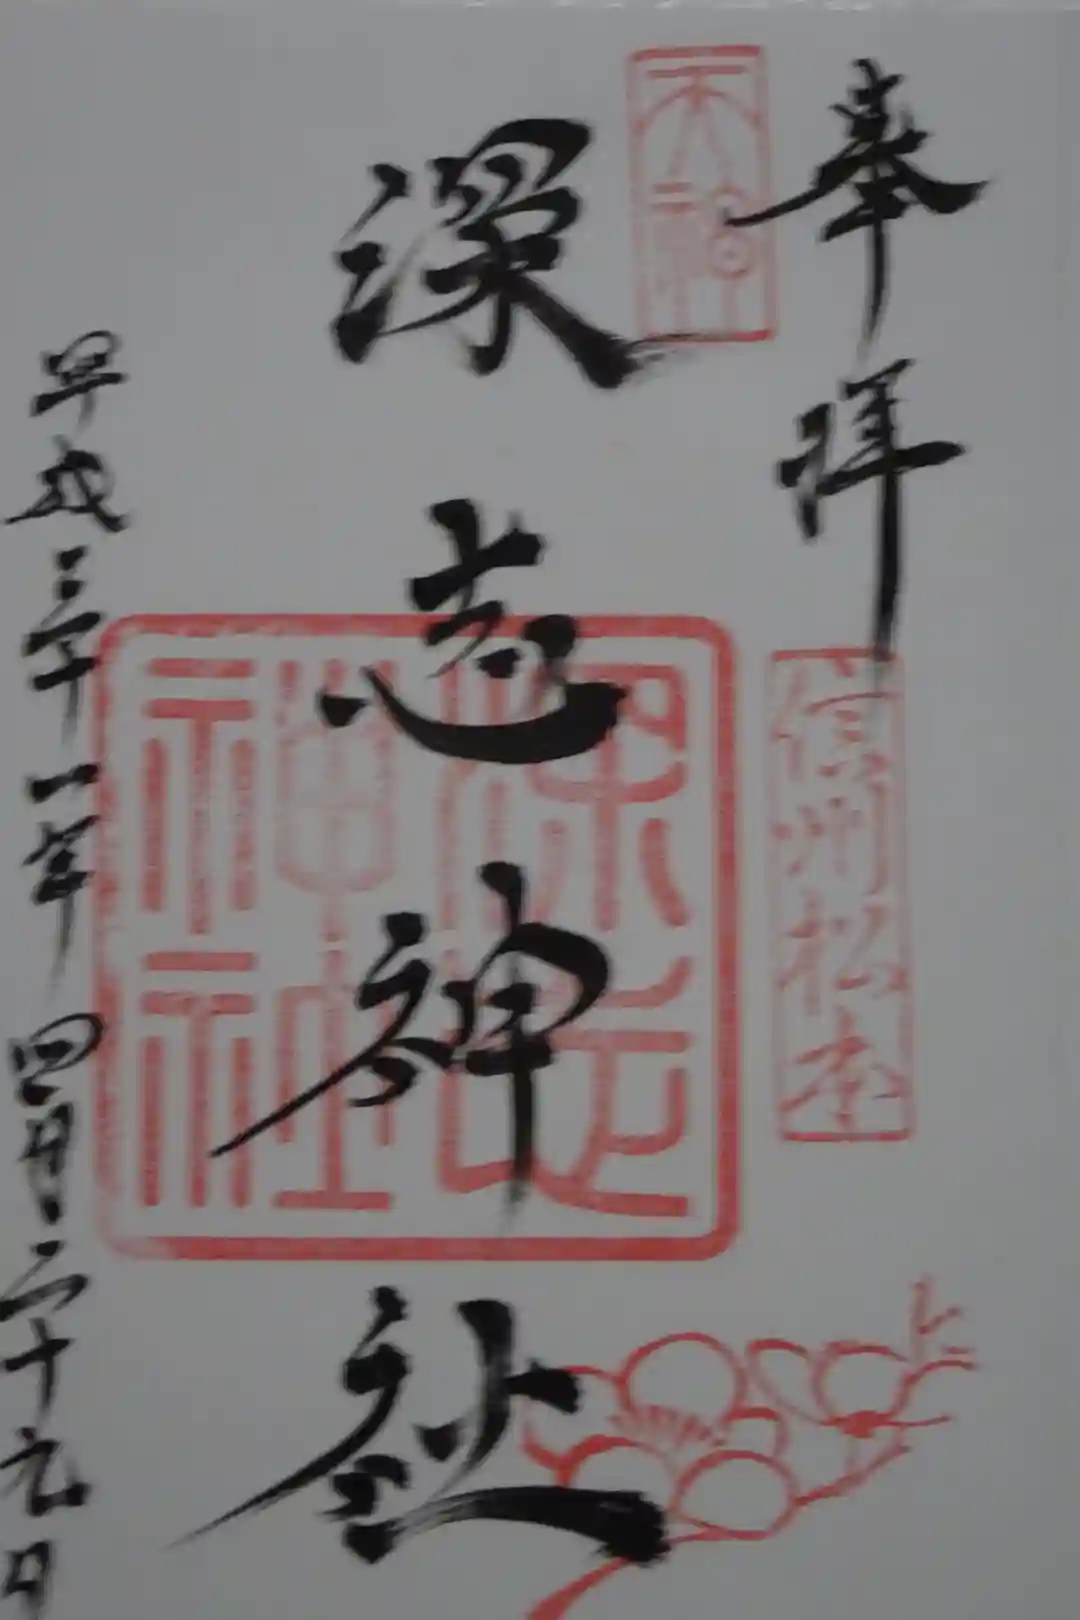 奉拝
天神
信州松本
深志神社
深志神社
平成三十一年四月二十九日